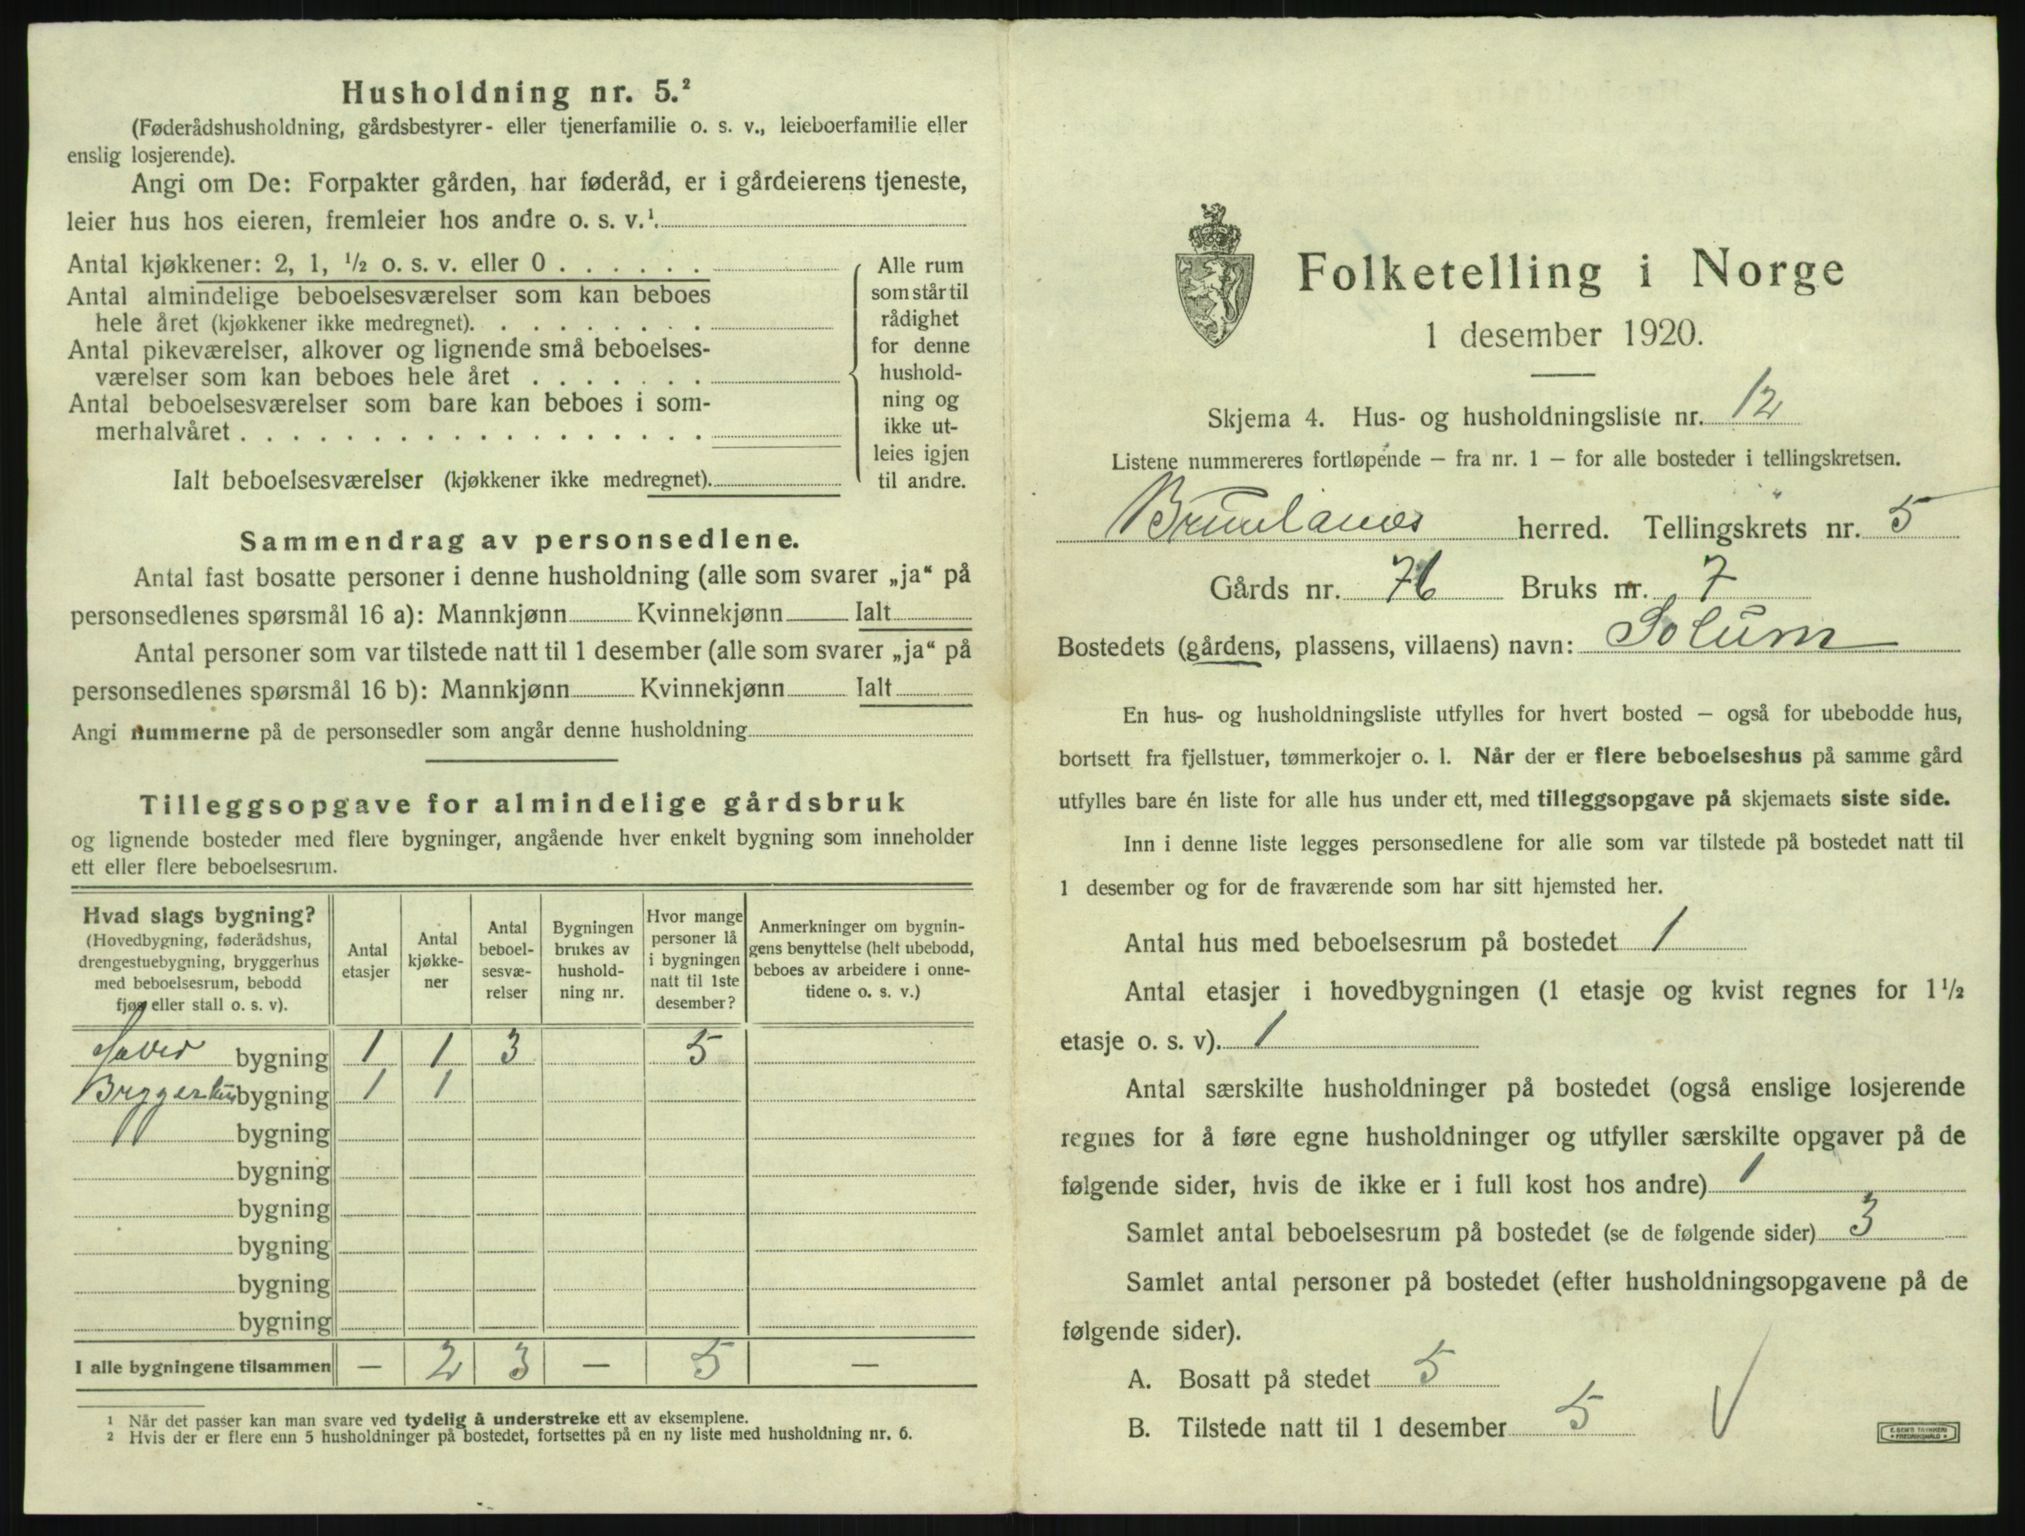 Husholdning nr. 5.²
(Føderådshusholdning, gårdsbestyrer- eller tjenerfamilie o. s. v., leieboerfamilie eller
enslig losjerende).
Angi om De: Forpakter gården, har føderåd, er i gårdeierens tjeneste,
leier hus hos eieren, fremleier hos andre o. s. v.¹.
Antal kjøkkener: 2, 1, ½ o. s. v. eller 0 . . . . . .
Antal almindelige beboelsesværelser som kan beboes
hele året (kjøkkener ikke medregnet). . . . . . . . .
Antal pikeværelser, alkover og lignende små beboelses-
værelser som kan beboes hele året . . . . . . .
Antal beboelsesværelser som bare kan beboes i som-
merhalvåret . . . . . . . . . . . . . . . . . .
Ialt beboelsesværelser (kjøkkener ikke medregnet).
Alle rum
som står til
rådighet
for denne
hushold-
ning og
ikke ut-
leies igjen
til andre.
Sammendrag av personsedlene.
Antal fast bosatte personer i denne husholdning (alle som svarer „ja“ på
personsedlenes spørsmål 16 a): Mannkjønn Kvinnekjønn Ialt
Antal personer som var tilstede natt til 1 desember (alle som svarer „ja“ på
personsedlenes spørsmål 16 b): Mannkjønn Kvinnekjønn Ialt
Angi nummerne på de personsedler som angår denne husholdning
Tilleggsopgave for almindelige gårdsbruk
og lignende bosteder med flere bygninger, angående hver enkelt bygning som inneholder
ett eller flere beboelsesrum.
Hvad slags bygning?
(Hovedbygning, føderådshus,
drengestuebygning, bryggerhus
med beboelsesrum, bebodd
fjøs eller stall o. s. v).
Antal
etasjer
Antal
kjøkke-
ner
Antal
beboel-
sesvæ-
relser
Bygningen
brukes av
hushold-
ning nr.
Hvor mange
personer lå
i bygningen
natt til 1ste
desember?
Anmerkninger om bygnin-
gens benyttelse (helt ubebodd,
beboes av arbeidere i onne-
tidene o. s. v.)
Hoved bygning 1 1 3 5
Bryggerhus bygning 1 1
bygning
bygning
bygning
bygning
bygning
bygning
I alle bygningene tilsammen — 2 3 — 5 —
¹ Når det passer kan man svare ved tydelig å understreke ett av eksemplene.
² Hvis der er flere enn 5 husholdninger på bostedet, fortsettes på en ny liste med husholdning nr. 6.
Folketelling i Norge
1 desember 1920.
Skjema 4. Hus- og husholdningsliste nr. 12
Listene nummereres fortløpende – fra nr. 1 – for alle bosteder i tellingskretsen.
Brunlanes herred. Tellingskrets nr. 5
Gårds nr. 76 Bruks nr. 7
Bostedets (gårdens, plassens, villaens) navn: Solum
En hus- og husholdningsliste utfylles for hvert bosted – også for ubebodde hus,
bortsett fra fjellstuer, tømmerkojer o. l. Når der er flere beboelseshus på samme gård
utfylles bare én liste for alle hus under ett, med tilleggsopgave på skjemaets siste side.
Inn i denne liste legges personsedlene for alle som var tilstede på bostedet natt til
1 desember og for de fraværende som har sitt hjemsted her.
Antal hus med beboelsesrum på bostedet 1
Antal etasjer i hovedbygningen (1 etasje og kvist regnes for 1½
etasje o. s. v). 1
Antal særskilte husholdninger på bostedet (også enslige losjerende
regnes for å føre egne husholdninger og utfyller særskilte opgaver på de
følgende sider, hvis de ikke er i full kost hos andre) 1
Samlet antal beboelsesrum på bostedet (se de følgende sider) 3
Samlet antal personer på bostedet (efter husholdningsopgavene på de
følgende sider).
A. Bosatt på stedet 5
B. Tilstede natt til 1 desember 5